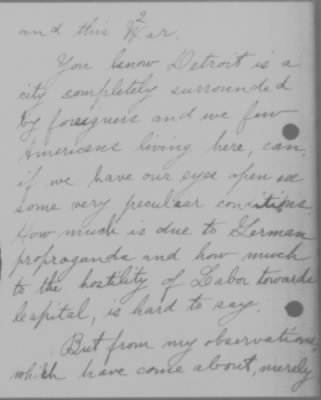 2
and this War.
You know Detroit is a
city completely surrounded
by foreigners and we few
Americans living here, can,
if we have our eyes open see
some very peculiar conditions.
How much is due to German
propraganda and how much
to the hostility of Labor towards
Capital, is hard to say.
But from my observations,
which have come about, merely